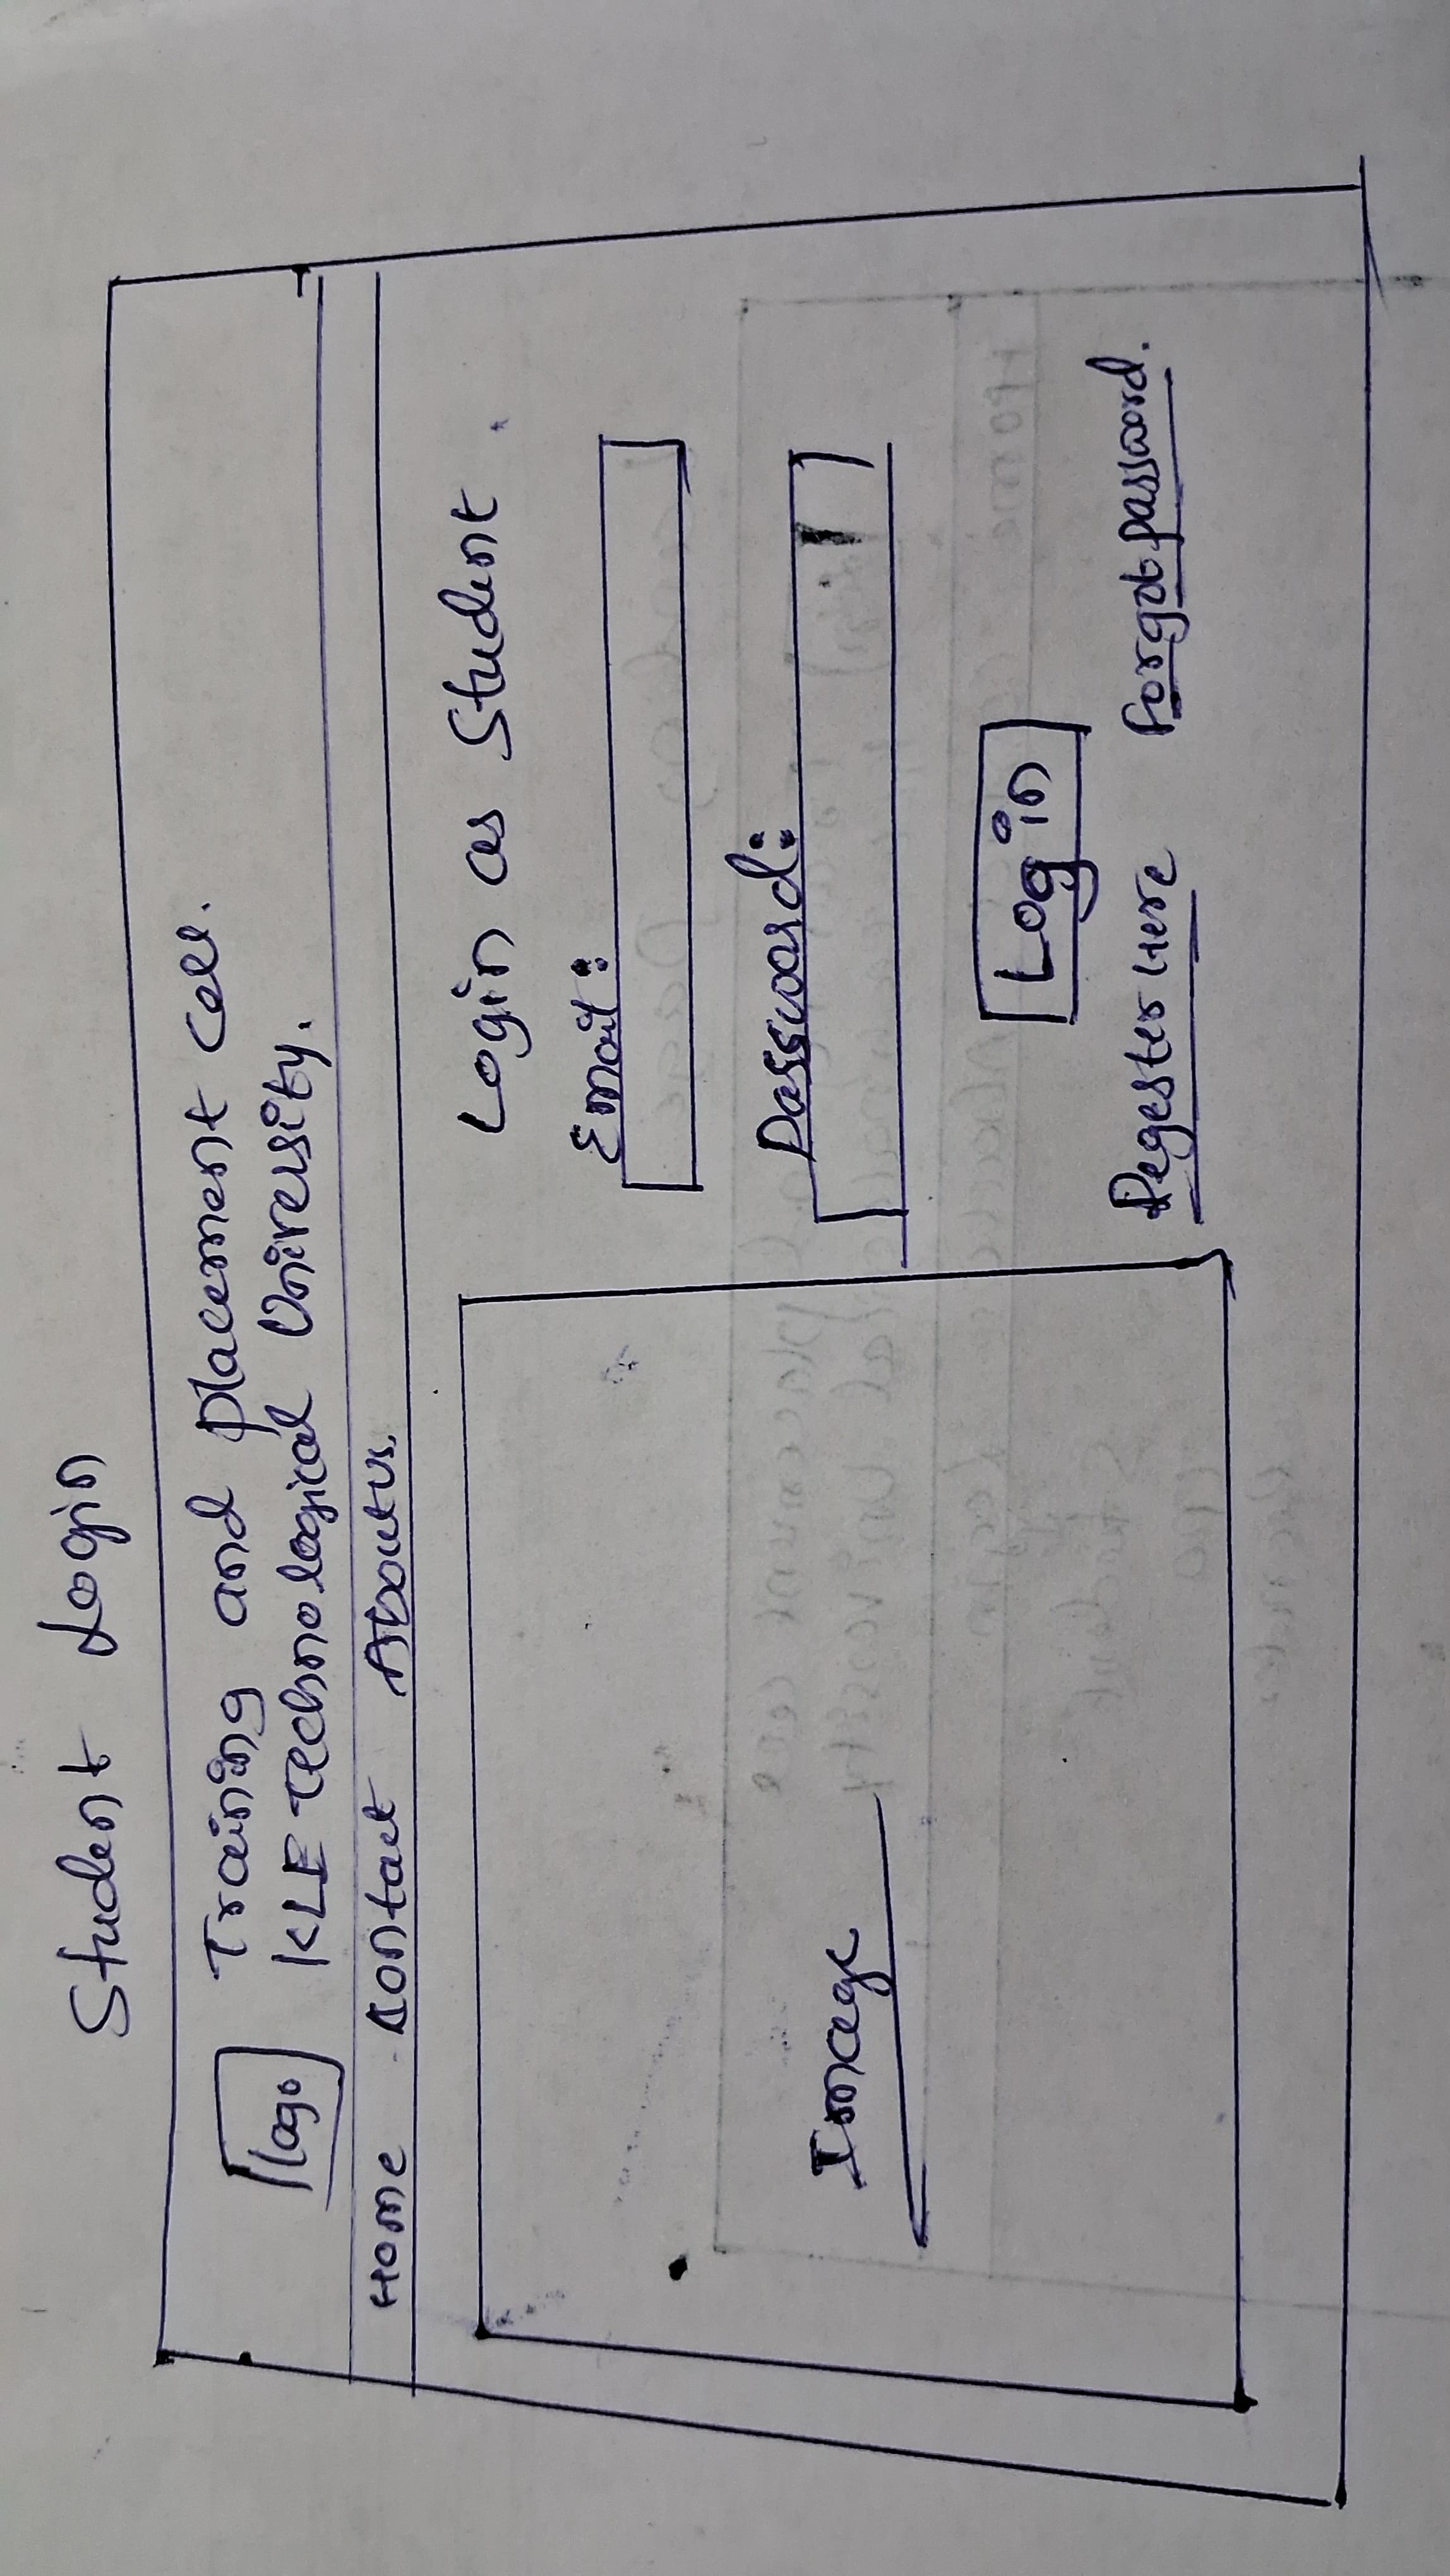 Student Login
Training and placement Cell.
logo
KLE Technological University.
Home Contact About us.
Login as Student
Email:
Password:
Image
Login
Regester Here Forgot password.